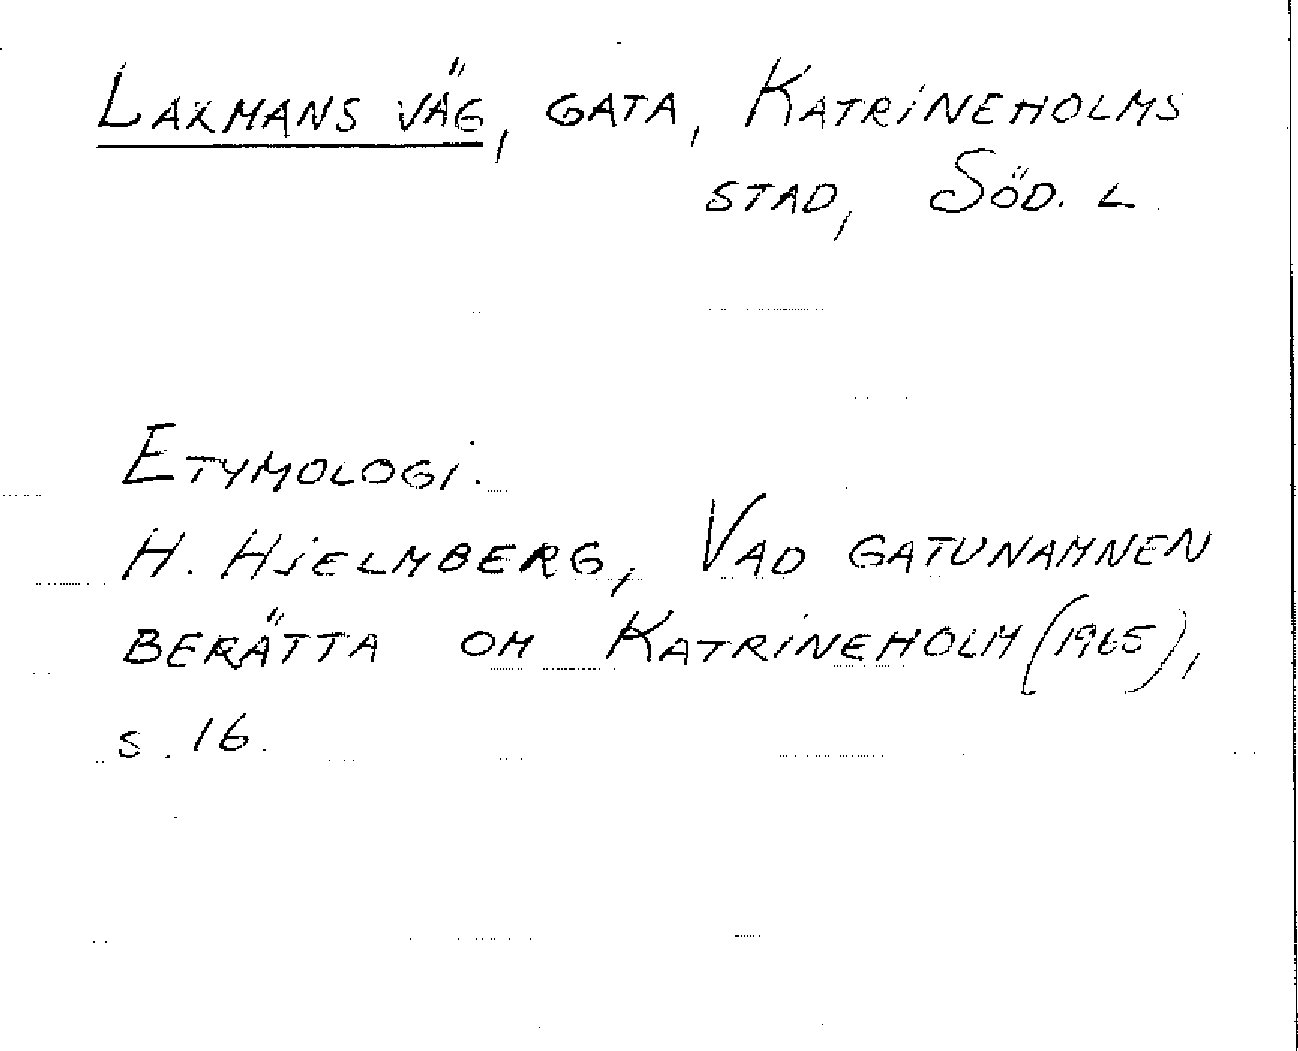 Laxmans väg, gata, Katrineholms
stad, Söd. L.
Etymologi.
H. Hjelmberg, Vad gatunamnen
berätta om Katrineholm (1965),
s. 16.